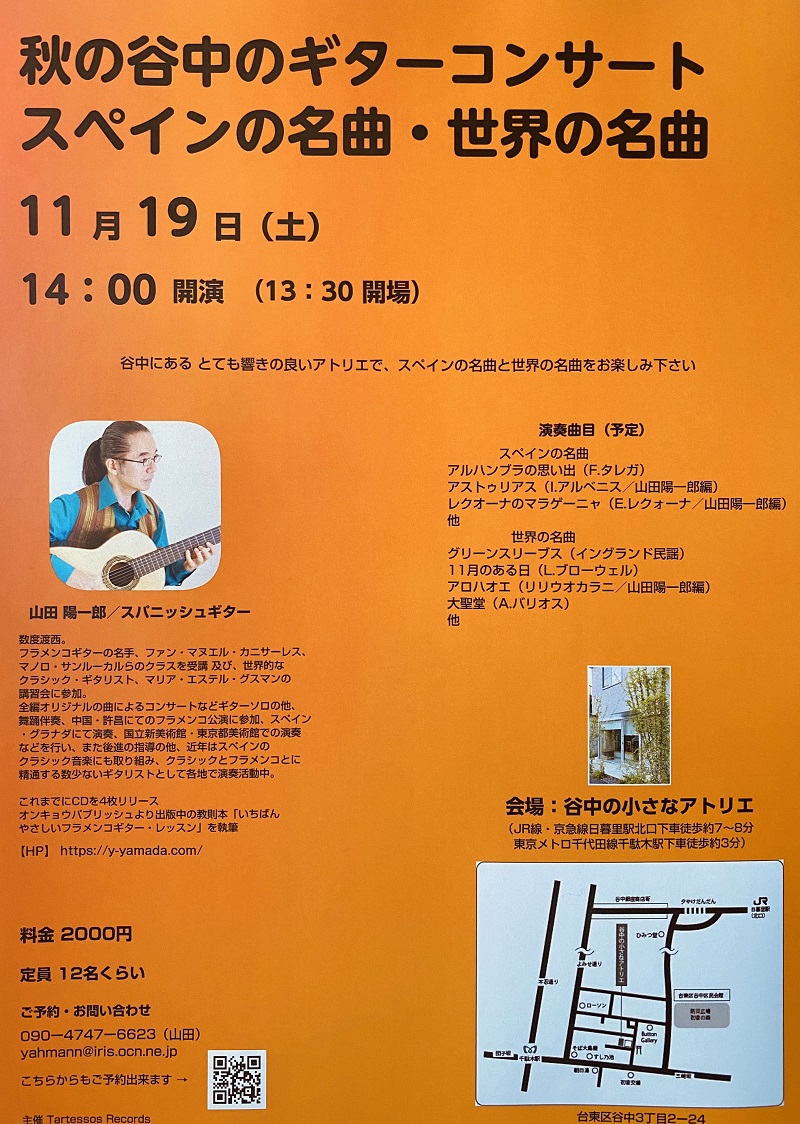 秋の谷中のギターコンサート
スペインの名曲・世界の名曲
11月19日（土）
14：00 開演 （13：30 開場）
谷中にある とても響きの良いアトリエで、スペインの名曲と世界の名曲をお楽しみ下さい
山田 陽一郎／スパニッシュギター
数度渡西。
フラメンコギターの名手、ファン・マヌエル・カニサーレス、
マノロ・サンルーカルらのクラスを受講 及び、世界的な
クラシック・ギタリスト、マリア・エステル・グスマンの
講習会に参加。
全編オリジナルの曲によるコンサートなどギターソロの他、
舞踊伴奏、中国・許昌にてのフラメンコ公演に参加、スペイン
・グラナダにて演奏、国立新美術館・東京都美術館での演奏
などを行い、また後進の指導の他、近年はスペインの
クラシック音楽にも取り組み、クラシックとフラメンコとに
精通する数少ないギタリストとして各地で演奏活動中。
これまでにCDを4枚リリース
オンキョウパブリッシュより出版中の教則本「いちばん
やさしいフラメンコギター・レッスン」を執筆
【HP】 https://y-yamada.com/
料金 2000円
定員 12名くらい
ご予約・お問い合わせ
090ー4747ー6623（山田）
yahmann@iris.ocn.ne.jp
こちらからもご予約出来ます →
主催 Tartessos Records
演奏曲目（予定）
スペインの名曲
アルハンブラの思い出（F.タレガ）
アストゥリアス（I.アルベニス／山田陽一郎編）
レクオーナのマラゲーニャ（E.レクォーナ／山田陽一郎編）
他
世界の名曲
グリーンスリーブス（イングランド民謡）
11月のある日（L.ブローウェル）
アロハオエ（リリウオカラニ／山田陽一郎編）
大聖堂（A.バリオス）
他
会場：谷中の小さなアトリエ
（JR線・京急線日暮里駅北口下車徒歩約7〜8分
東京メトロ千代田線千駄木駅下車徒歩約3分）
谷中銀座商店街
夕やけだんだん
JR
日暮里駅
（北口）
ひみつ堂
谷中の小さなアトリエ
よみせ通り
不忍通り
ローソン
台東区谷中区民会館
防災広場
初音の森
Button
Gallery
そば大島屋
すし乃池
団子坂
千駄木駅
朝日湯
初音交番
三崎坂
台東区谷中3丁目2ー24